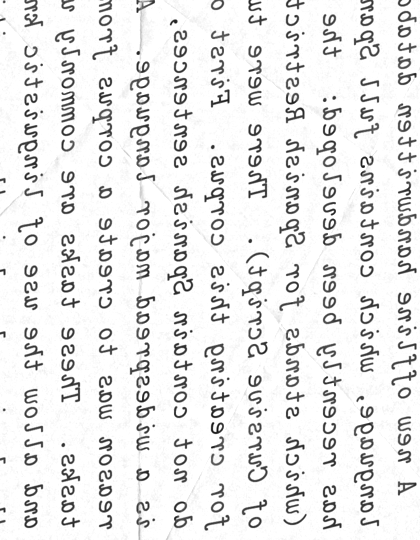 A new offline handwritten databa
language, which contains full Span
has recently been developed: the
(which stands for Spanish Restrict
of Cursive Script). There were tw
for creating this corpus. First o
do not contain Spanish sentences,
is a widespread major language. A
reason was to create a corpus from
tasks. These tasks are commonly u
and allow the use of linguistic kn